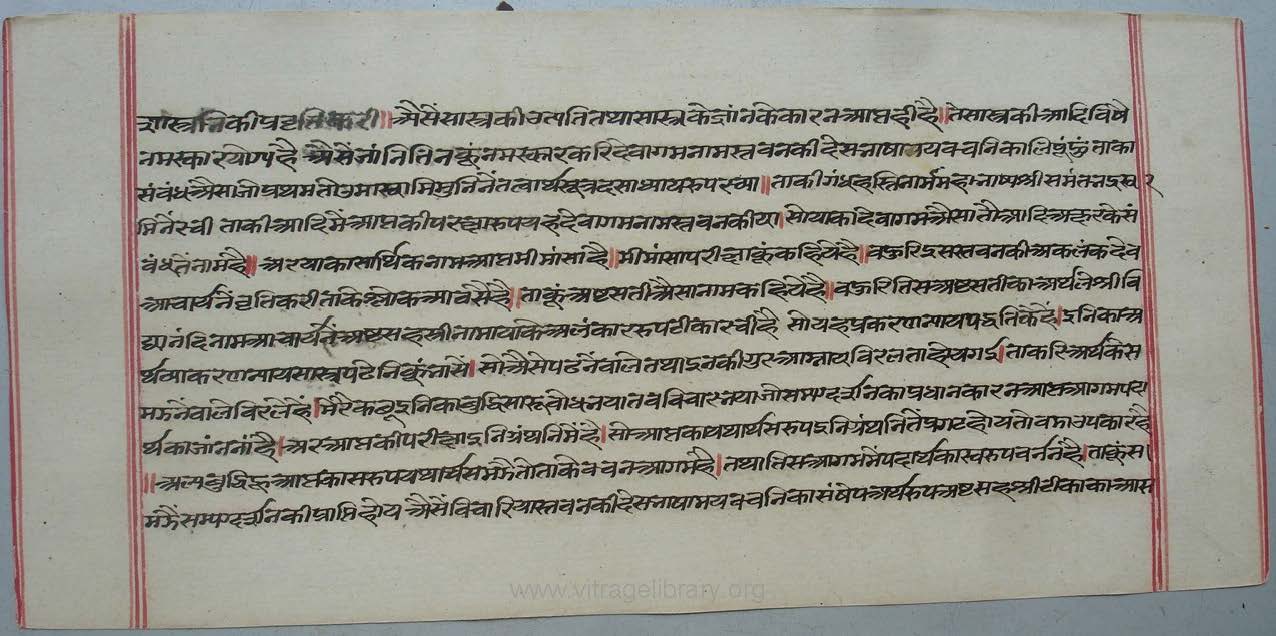 शास्त्रनिकी प्रवृत्ति करी॥ अैसें सास्त्रकी उत्पति तथा सास्त्रके ज्ञांनके कारन आप्त ही है॥ ते सास्त्रकी आदि विषै
नमस्कार योग्य है अैसें जांनि तिनकूं नमस्कार करि देवागम नाम स्तवनकी देस भाषामय वचनिका लिषूं हूं ताका
संवंध अैसा जो प्रथम तौ उमास्वामि मुनिनें तत्वार्थसूत्र दसाध्यायरुप रच्या॥ ताकी गंधहस्तिनामं महाभाष्य श्री समंतभद्रस्वा
मिनें रची ताकी आदिमें आप्तकी परीक्षारुप यह देवागम नाम स्तवन कीया। सो याका देवागम अैसा तौ आदि अक्षरके सं
वंधतें नाम है॥ अर याका सार्थिक नाम आप्तमीमांसा है॥ मीमांसा परीक्षाकूं कहिये है॥ वहुरि इस स्तवनकी अकलंकदेव
आचार्यनें वृति करी ताके श्लोक आठसै है॥ ताकूं अष्टसती अैसा नाम कहिये है॥ वहुरि तिस अष्टसतीका अर्थ लेे श्री वि
द्यानंदि नाम आचार्यनें अष्टसहस्त्री नामा याके अलंकाररुप टीका रची है सो यह प्रकरण न्यायपद्धतिके हैं। इनिका अ
र्थ व्याकरण न्याय सास्त्र पढे निकूं भासें। सो अैसे पढनेंवाले तथा इनकी गुरु आम्नाय विरलता होय गई। ताकरि अर्थके स
मझनेंवाले विरले हैं। मेरै कछू इनिका वुद्धिसारू वोध भया तव विचार भया जो सम्यग्दर्शनका प्रधान कारन आप्त आगम पदा
र्थका जांननां है। अर आप्तकी परीक्षा इनि ग्रंथनिमें है। सो आप्तका यथार्थ सरुप इनि ग्रंथनितें प्रगट होय तो वडा उपकार है
॥ अल्पवुद्धि हू आप्तका सरुप यथार्थ समझै तो ताके वचन आगम है। तथा तिस आगममें पदार्थका स्वरुप वर्नन है। ताकूं स
मझैं सम्यग्दर्शनकी प्राप्ति होय अैसें विचारि या स्तवनकी देस भाषामय वचनिका संषेप अर्थरुप अष्टसहश्री टीकाका आस
www.vitragelibrary.org